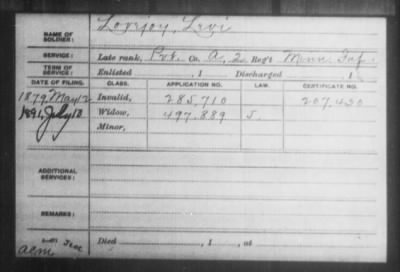 NAME OF SOLDIER: Lovejoy, Levi
SERVICE: Late rank, Pvt. Co. A, 2 Reg't Minn. Inf.
TERM OF SERVICE: Enlisted , 1 Discharged , 1
DATE OF FILING. CLASS. APPLICATION NO. LAW. CERTIFICATE NO.
1879 May 12 Invalid, 285,710 207,430
1891, July 18 Widow, 497.889 J.
Minor,
ADDITIONAL SERVICES:
REMARKS:
Died , 1 , at